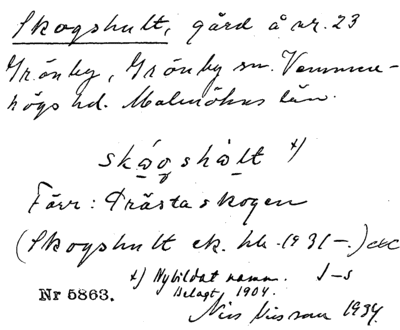 Skogshult, gård å nr. 23
Grönby, Grönby sn. Vemmen-
högs hd. Malmöhus län.
skǫgshu̱lt x)
Förr: Prästaskogen
(Skogshult ek. bl. 1931–.)
x) Nybildat namn. J–s
Belagt 1904.
Nr 5863.
Nils Nilsson 1934.